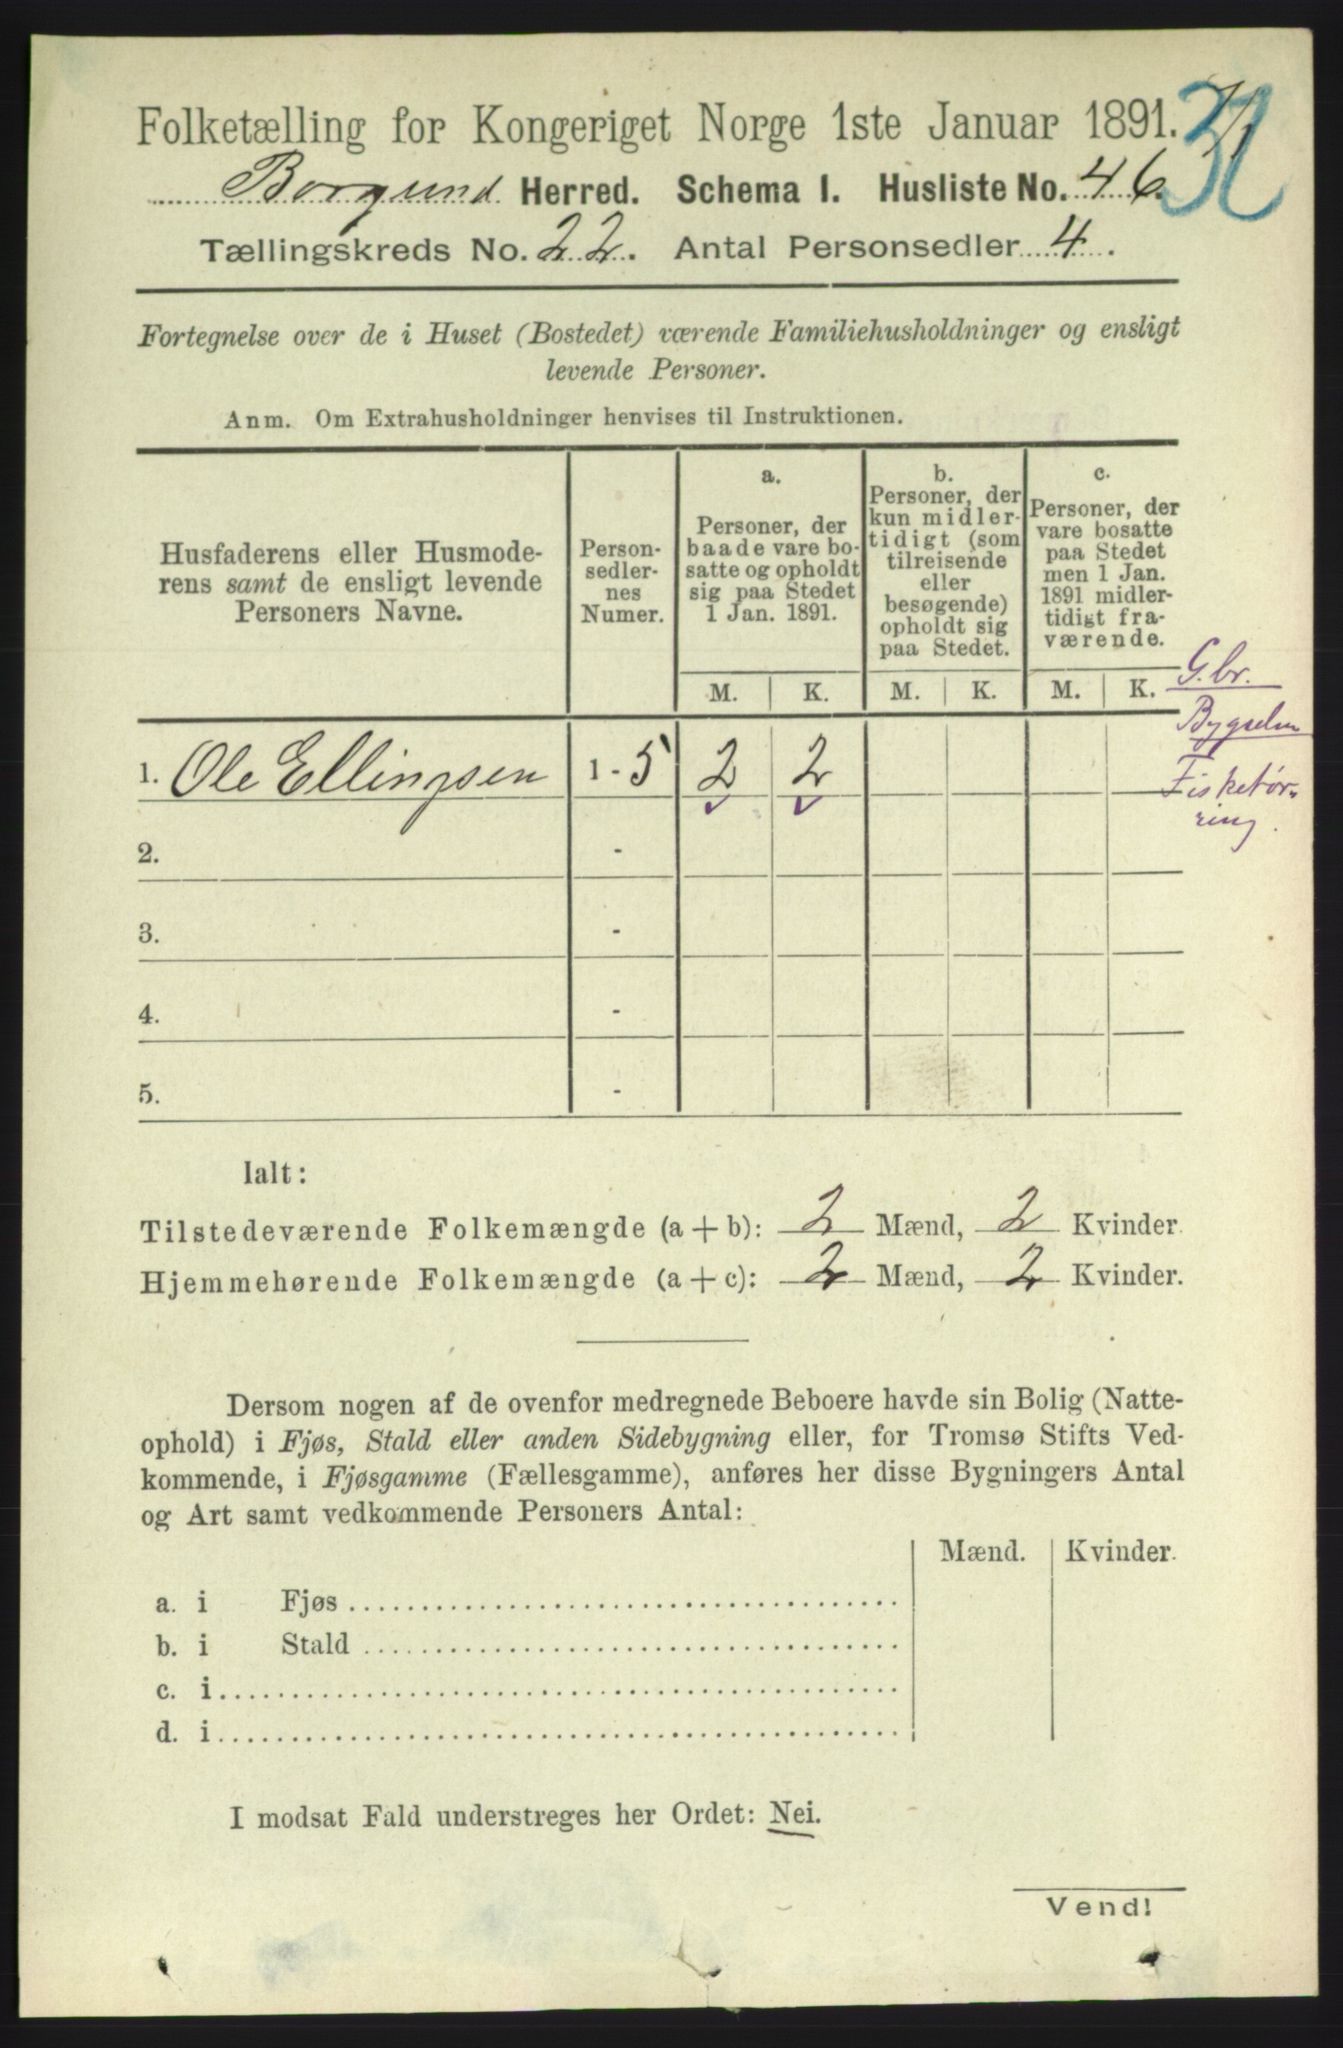 Folketælling for Kongeriget Norge 1ste Januar 1891. 32
Borgund Herred. Schema I. Husliste No. 46.
Tællingskreds No. 22. Antal Personsedler 4.
Fortegnelse over de i Huset (Bostedet) værende Familiehusholdninger og ensligt
levende Personer.
Anm. Om Extrahusholdninger henvises til Instruktionen.
Husfaderens eller Husmode-
rens samt de ensligt levende
Personers Navne.
Person-
sedler-
nes
Numer.
a.
Personer, der
baade vare bo-
satte og opholdt
sig paa Stedet
1 Jan. 1891.
b.
Personer, der
kun midler-
tidigt (som
tilreisende
eller
besøgende)
opholdt sig
paa Stedet.
c.
Personer, der
vare bosatte
paa Stedet
men 1 Jan.
1891 midler-
tidigt fra-
værende.
M. K. M. K. M. K.
G.br.
Bygselm
Fisketør-
ring.
1. Ole Ellingsen 1 - 5 2 2
2. -
3. -
4. -
5. -
Ialt:
Tilstedeværende Folkemængde (a + b): 2 Mænd, 2 Kvinder.
Hjemmehørende Folkemængde (a + c): 2 Mænd, 2 Kvinder.
Dersom nogen af de ovenfor medregnede Beboere havde sin Bolig (Natte-
ophold) i Fjøs, Stald eller anden Sidebygning eller, for Tromsø Stifts Ved-
kommende, i Fjøsgamme (Fællesgamme), anføres her disse Bygningers Antal
og Art samt vedkommende Personers Antal:
Mænd. Kvinder.
a. i Fjøs
b. i Stald
c. i
d. i
I modsat Fald understreges her Ordet: Nei.
Vend!